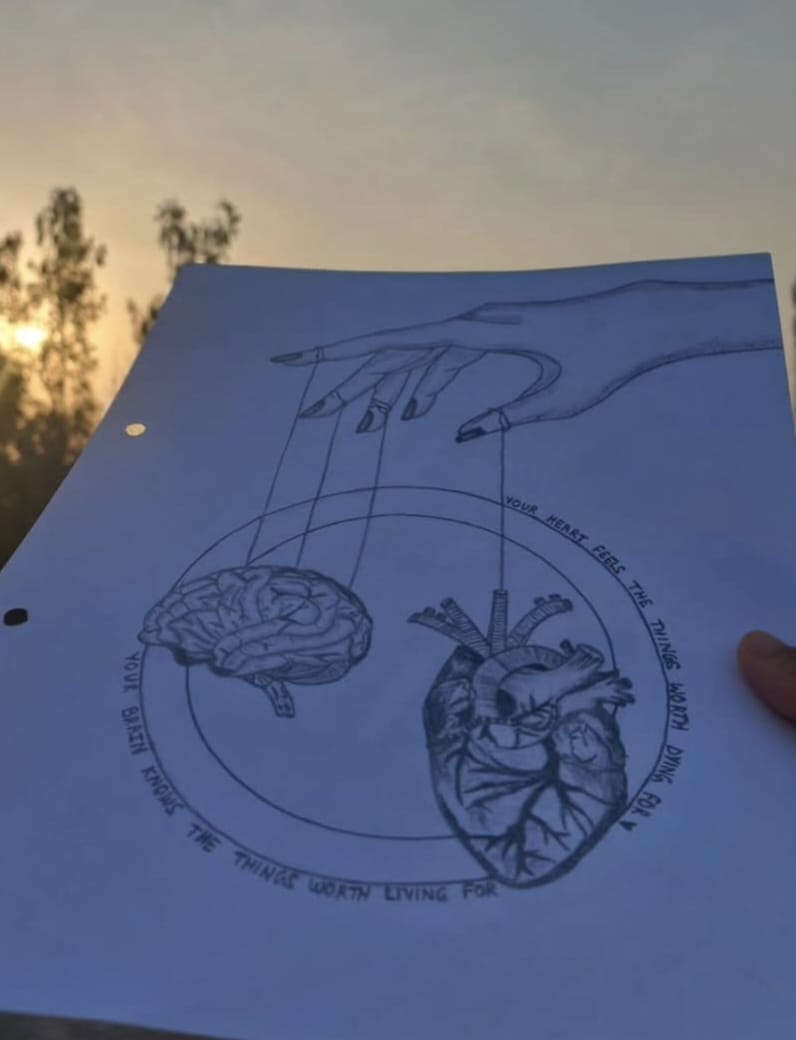 YOUR HEART FEELS THE THINGS WORTH DYING FOR
YOUR BRAIN KNOWS THE THINGS WORTH LIVING FOR